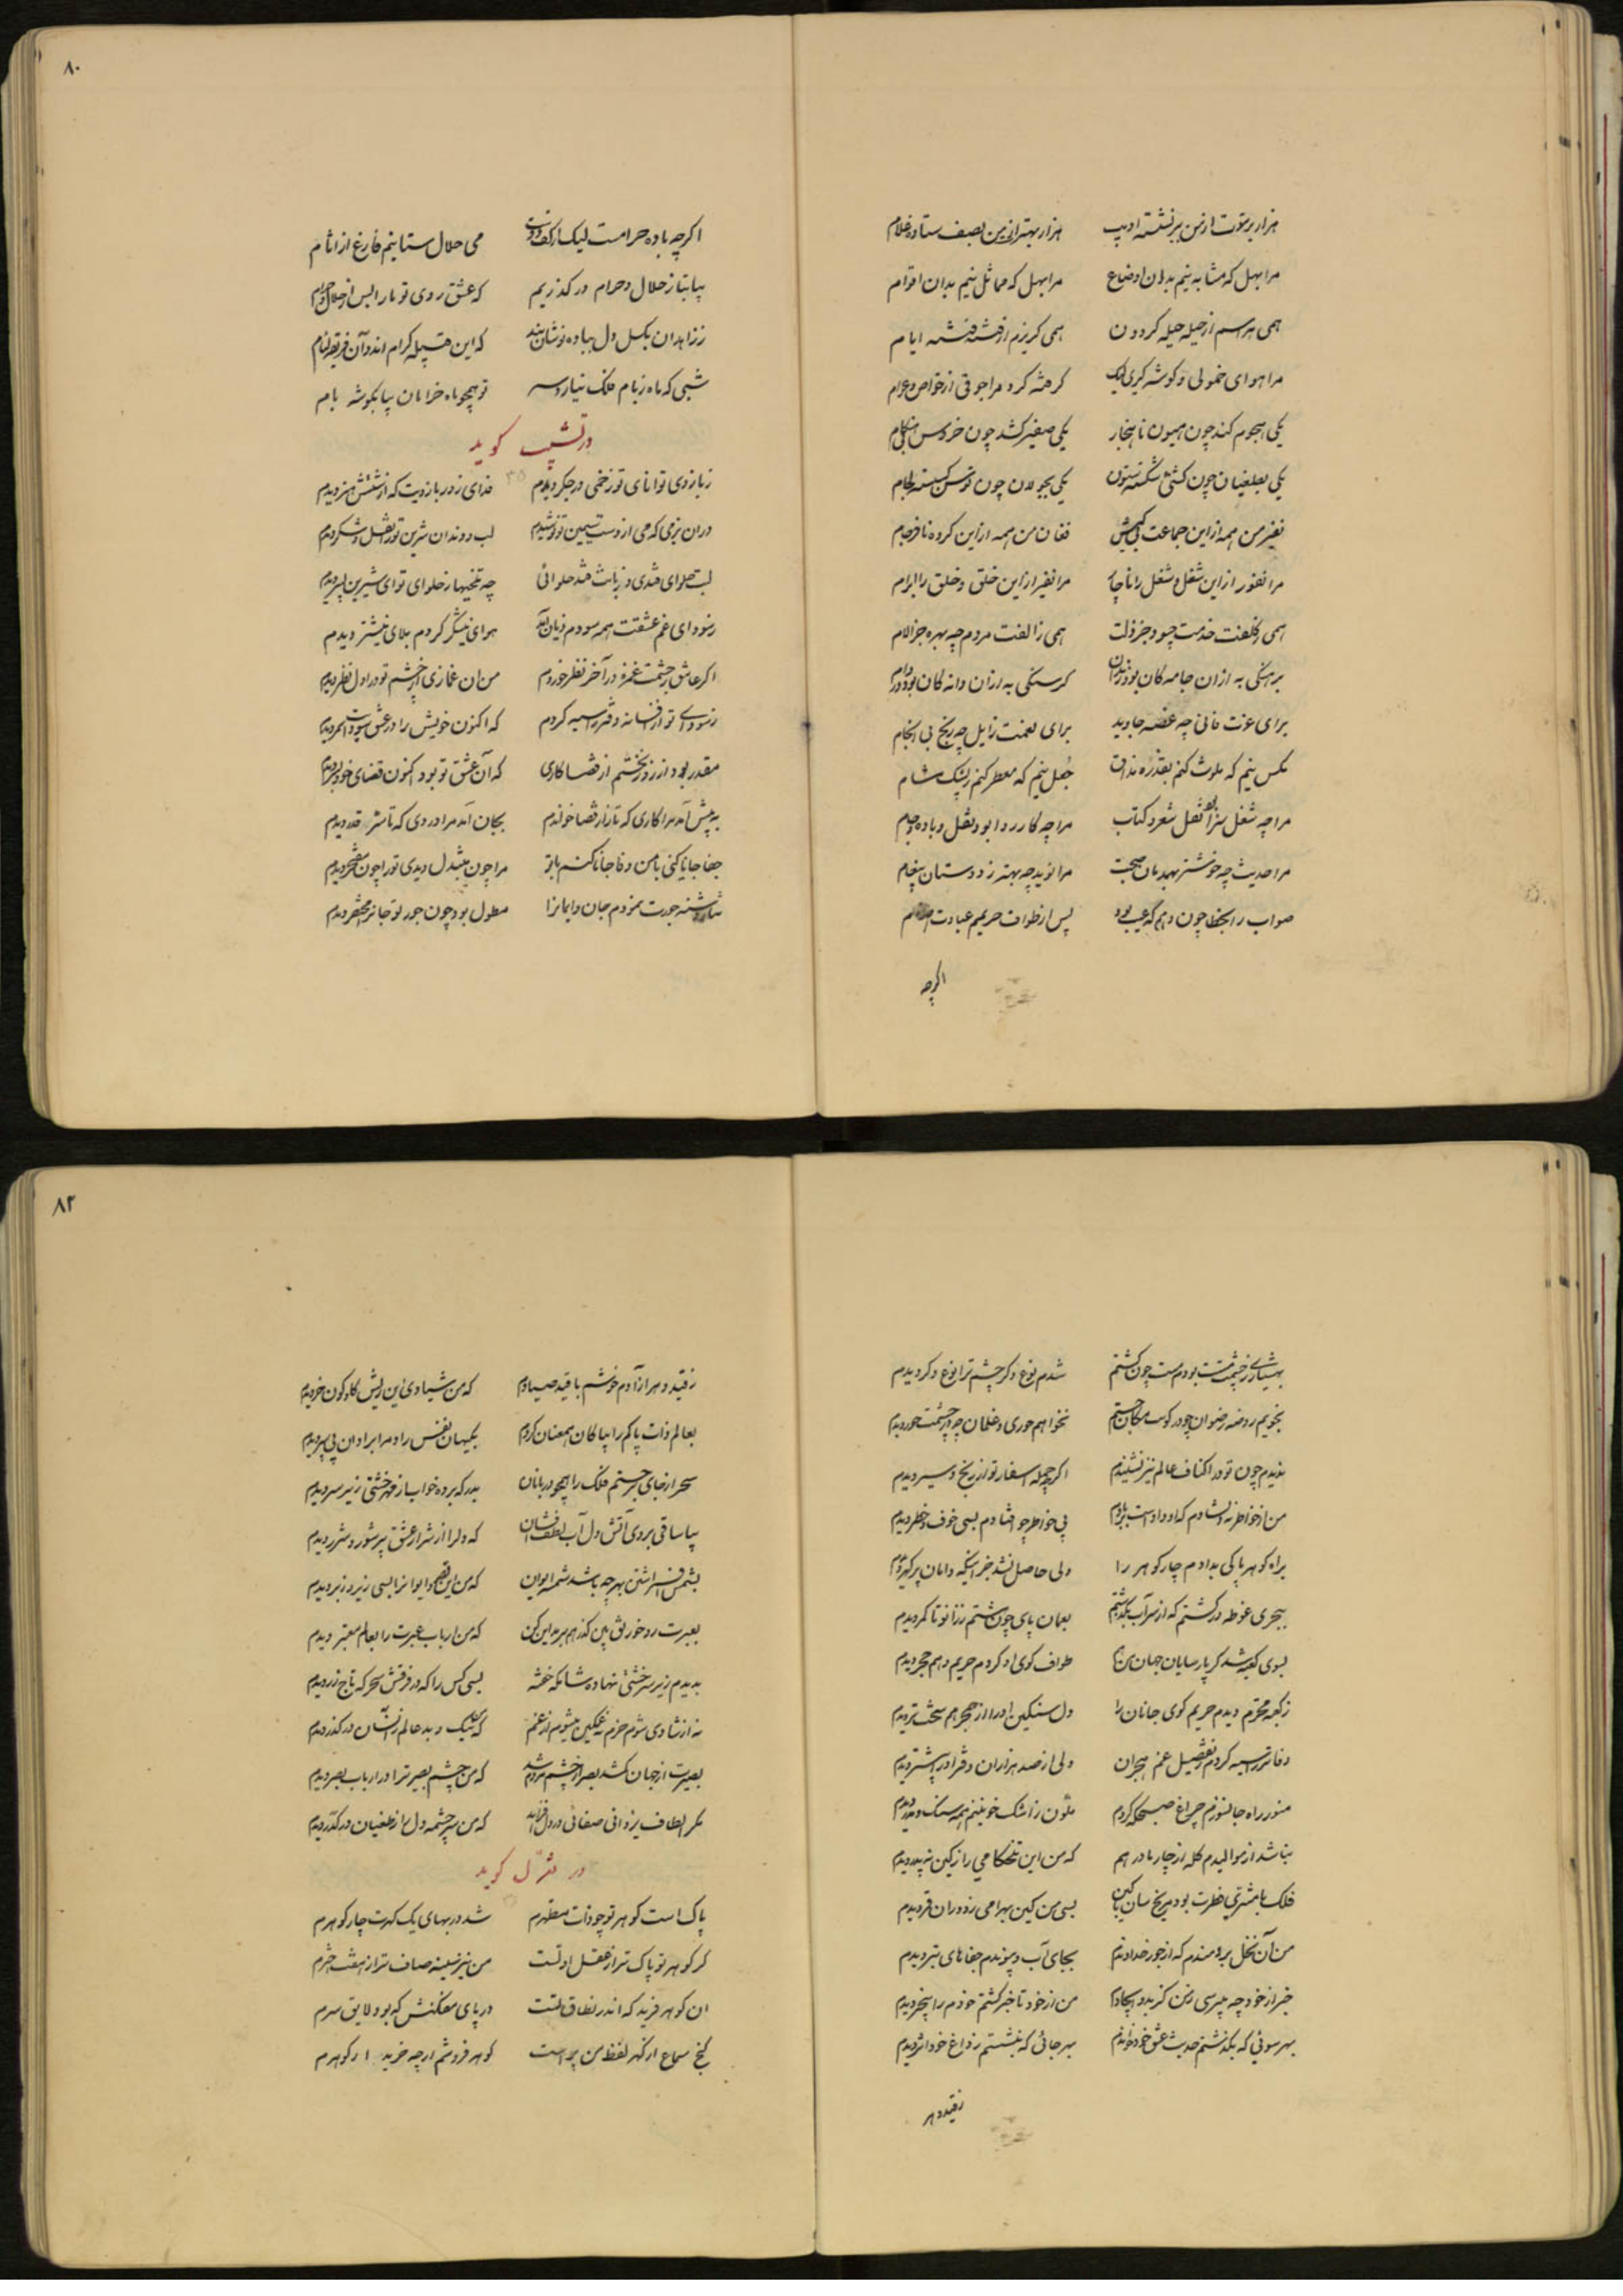 هزار برتوت از من برنشسته ادیب هزار بهتر از من بصف ستاده غلام
مرا بهل که مشابه نیم بدان اوضاع مرا بهل که مماثل نیم بدان اقوام
همی هراسم از حیله حیله گردون همی گریزم از فتنه فتنه ایام
مرا هوای خمولی و گوشه گیری کرفته کرد مرا جوقی از خواص و عوام
یکی هجوم کند چون هیون ناهنجار یکی صفیر کشد چون خروس بی هنگام
یکی بطغیان چون کشتی شکسته ستون یکی بجولان چون توسن کسسته لجام
نفیر من همه از این جماعت بی کیش فغان من همه از این گروه نافرجام
مرا نفور از این شغل و شغل را ناچار مرا نفیر از این خلق و خلق را ابرام
همی ز کلفت خدمت چه سود جز ذلت همی ز الفت مردم چه بهره جز آلام
برهنگی به از آن جامه کان بود گرسنگی به از آن دانه کان بود در دام
برای عزت فانی چه غصه جاوید برای نعمت زایل چه رنج بی انجام
مگس نیم که ملوث کنم بقذر مذاق جعل نیم که معطر کنم ز پشک مشام
مرا چه شغل سزا بود نقل شعر و کتاب مرا چه کار روا بود نقل و باده و جام
مرا حدیث چه خوشتر بهمدمان صحبت مرا نوید چه بهتر ز دوستان پیغام
صواب را بخطا چون دهم که عیب بود پس از طواف حریم عبادت اصنام
اگرچه
۸۰
اگرچه باده حرامست لیک از کف دوست می حلال ستانیم فارغ از آثام
بیا بتا ز حلال و حرام در گذریم که عشق روی تو ما را بس از حلال و حرام
ز زاهدان بگسل دل بباده نوشان بند که این قبیله کرام اند و آن فریق لئام
شبی که ماه ز بام فلک نیارد سر تو همچو ماه خرامان بیا بگوشه بام
در تشبیب گوید
ز بازوی توانای تو زخمی در جگر دیدم فدای زور بازویت که از شستش هنر دیدم
در آن بزمی که می از دست سیمین تو نوشیدم لب و دندان شیرین تو را نقل و شکر دیدم
لبت حلوای قندی و زبانت قند حلوائی چه تلخیها ز حلوای تو ای شیرین پسر دیدم
ز سودای غم عشقت همه سودم زیان آمد هوای نیشکر کردم بلای نیشتر دیدم
اگر عاشق ز چشمت غمزه در آخر نظر خوردم من آن غمازی از چشم تو در اول نظر دیدم
ز سودای تو از افسانه دفتر سیه کردم که اکنون خویش را در عشق سودت سمر دیدم
مقدر بود از روز نخستم از قضا کاری که آن عشق تو بود اکنون قضای خود بسر دیدم
به پیش آمد مرا کاری که تا راز قضا خواندم بجان آمد مرا دردی که تا سر قدر دیدم
جفا جانا کنی با من وفا جانا کنم با تو مرا چون مبتدل دیدی تو را چون مفتخر دیدم
جورت نمودم جان و ایمانرا مطول بود چون جور تو جانرا مختصر دیدم
ز چشم مستت بودم مست چون گشتم شدم نوع دگر چشم ترا نوع دگر دیدم
نجویم روضه رضوان چو در کویت مکان جستم نخواهم حوری و غلمان چو از چشمت حور دیدم
ندیدم چون تو در اکناف عالم نیز نشنیدم اگرچه جمله اسفار تواریخ و سیر دیدم
من از خاطر نه دلشادم که او دادست بر بادم پی خواطر چو افتادم بسی خوف و خطر دیدم
براه گوهر پاکی بدادم چار گوهر را ولی حاصل نشد جز اینکه دامان پر گهر دیدم
ببحری غوطه ور گشتم که از سر آب بگذشتم بعمان پای چون هشتم ز زانو تا کمر دیدم
بسوی کعبه شد گر پارسایان جهان من هم طواف کوی او کردم حریم و هم حجر دیدم
ز کعبه محترم دیدم حریم کوی جانان را دل سنگین او را از حجر هم سخت تر دیدم
دفاتر سیه کردم بتفصیل غم هجران ولی از صد هزاران دفتر او را بیشتر دیدم
منور راه جانسوزم چراغ صبحگه کردم ملون ز اشک خونینم همه سنگ و مدر دیدم
نباشد از موالیدم گله از چار مادر هم که من این تلخکامی را ز کین نه پدر دیدم
فلک با مشتری فطرت بود مریخ سان کین بسی من کین بهرامی ز دوران قمر دیدم
من آن نخل برومندم که از جور خداوندم بجای آب و پیوندم جفاهای تبر دیدم
خبر از خود چه میپرسی ز من کز بدو ایجادم من از خود تا خبر گشتم خودم را بیخبر دیدم
بهر سوئی که بگذشتم حدیث عشق خود خواندم بهر جائی که بنشستم ز داغ خود اثر دیدم
ز قید دهر
۸۲
ز قید دهر آزادم خوشم با قید صیادم که من شیادی این ریش گاو کون خر دیدم
بعالم ذات پاکم را بپاکان همعنان کردم بکیهان نفس راد مرا برادان پی سپر دیدم
سحر از جای برجستم فلک را همچو دربانان بدرگه برده خواب از قهر خشتی زیر سر دیدم
بیا ساقی بروی آتش دل آب لطف افشان که دلرا از شرار عشق پر شور و شرر دیدم
بشمس افراشتن بهر چه باشد شمسه ایوان که من این قصر و ایوانرا بسی زیر و زبر دیدم
بعبرت رو خورنق بین گذر هم بر مداین کن که من ارباب عبرت را بعالم معتبر دیدم
بدیدم زیر سر خشتی نهاده شامگه خفته بسی کس را که در فرقش سحرگه تاج زر دیدم
نه از شادی شوم خرم نه غمگین میشوم از غم که نیک و بد عالم زنسان در گذر دیدم
بصیرت از جهان کشد بصر از چشم مردم شد که من چشم بصیرت را در ارباب بصر دیدم
مگر الطاف یزدانی صفائی در دل افزاید که من سرچشمه دل از طغیان در کدر دیدم
در تغزل گوید
پاک است گوهر تو چو ذات مطهرم شد در بهای یک گهرت چار گوهرم
گر گوهر تو پاک تر از عقل اولست من نیز سینه صاف تر از هفت اخترم
آن گوهر فرید که اندر نطاق تست در پای می فکنش که بود لایق سرم
گنج سماع از گهر لفظ من پر است گوهر فروشم ار چه خریدار گوهرم